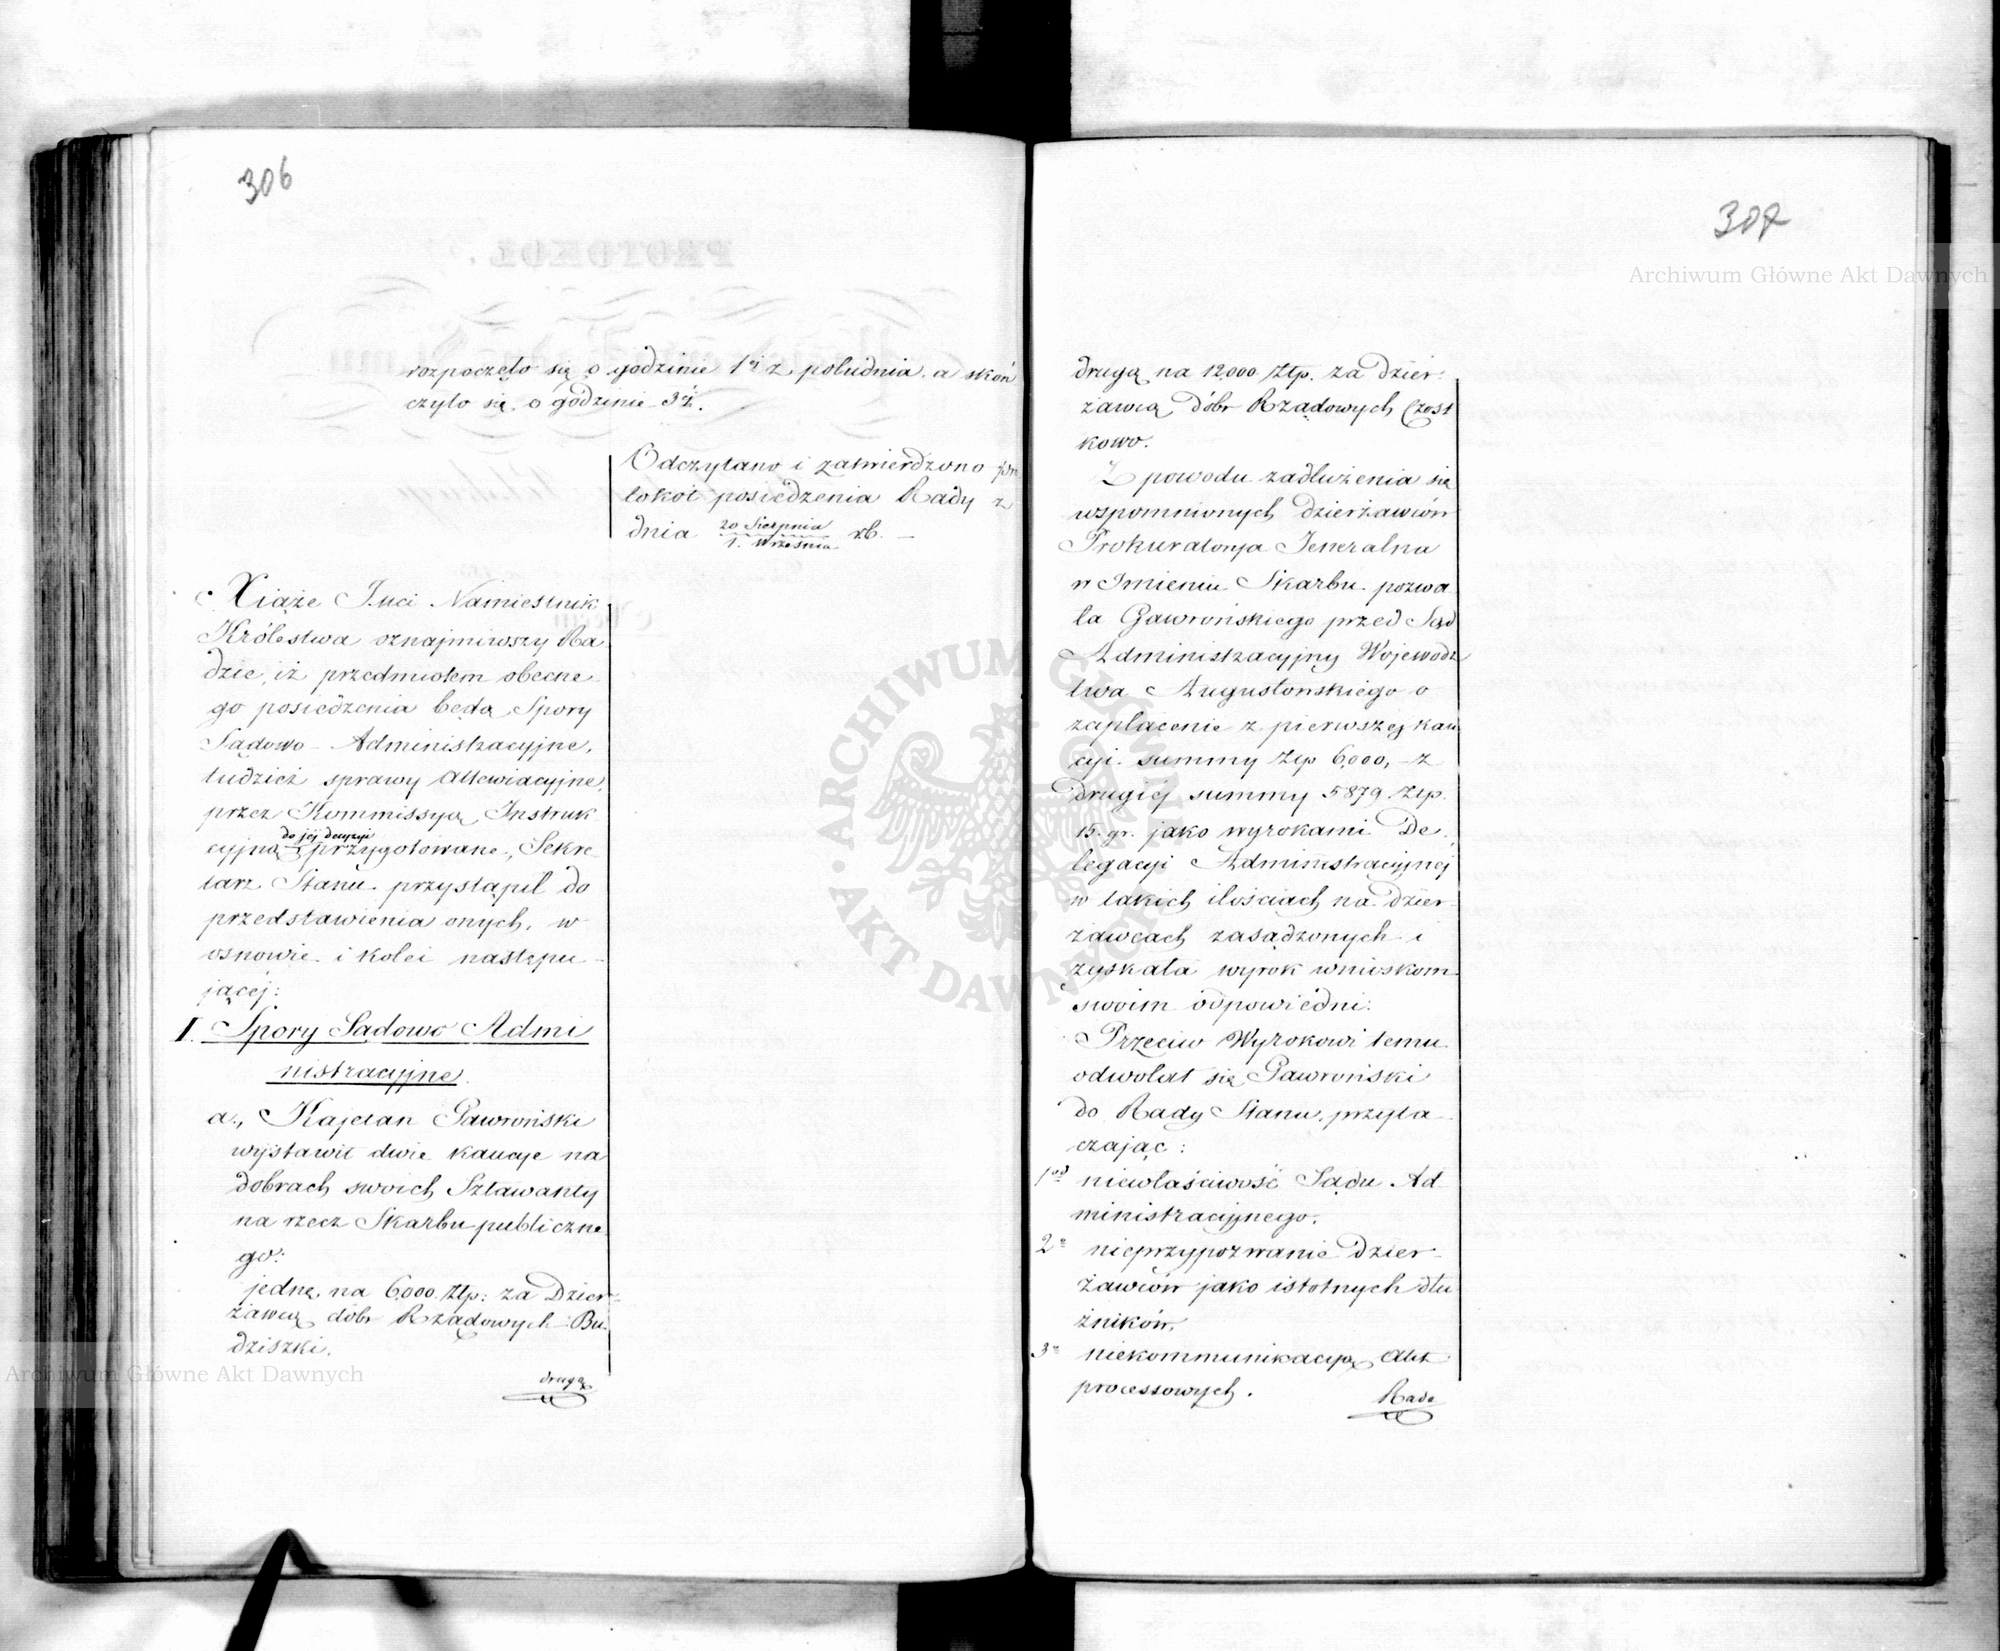 306
rozpoczęło się o godzinie 1éj z południa. a skoń
czyło się o godzinie 3éj.
Odczytano i zatwierdzono pro
tokół posiedzenia Rady z
dnia 20 Sierpnia / 1. Września r.b. —
Xiąże Jmci Namiestnik
Królestwa oznajmiwszy Ra
dzie, iż przedmiotem obecne
go posiedzenia będą Spory
Sądowo-Administracyjne,
tudzież sprawy Allewiacyjne,
przez Kommissyą Instruk
do jéj decyzyi
cyjną przygotowane, Sekre-
tarz Stanu przystąpił do
przedstawienia onych, w
osnowie i kolei następu-
jącej:
I. Spory Sądowo Admi
nistracyjne.
a., Kajetan Gawroński
wystawił dwie kaucje na
dobrach swoich Sztawanty
na rzecz Skarbu publiczne
go:
jedną na 6,000 Złp: za Dzier-
żawcą dóbr Rządowych Bu-
dziszki.
drugą
307
Archiwum Główne Akt Dawnych
drugą na 12,000 Złp. za dzier:
żawcą dóbr Rządowych Czost
kowo.
Z powodu zadłużenia się
wspomnionych dzierżawców
Prokuratorya Jeneralna
w Imieniu Skarbu pozwa
ła Gawrońskiego przed Sąd
Administracyjny Wojewódz
twa Augustowskiego o
zapłacenie z pierwszej kau
cyi summy Złp 6,000, – z
drugiéj summy 5879 Złp.
15. gr. jako wyrokami De-
legacyi Administracyjnej
w takich ilościach na dzier-
żawcach zasądzonych i
zyskała wyrok wnioskom
swoim odpowiedni:
Przeciw Wyrokowi temu
odwołał się Gawroński
do Rady Stanu, przyta-
czając:
1od niewłaściwość Sądu Ad
ministracyjnego.
2e nieprzypozwanie dzier-
żawców jako istotnych dłu
żników.
3e niekommunikacyą Akt
processowych.
Rada
ARCHIWUM GŁÓWNE AKT DAWNYCH
Archiwum Główne Akt Dawnych